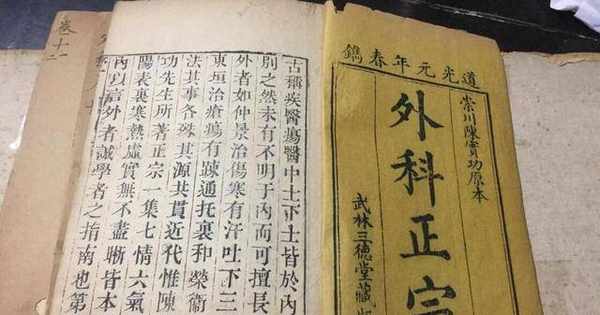 道光元年春鐫
崇川陳實功原本
外科正宗
武林三德堂藏
古稱疾醫瘍醫中士下士皆於內
別之然未有不明于內而可擅長
外者如仲景治傷寒有汗吐下三
東垣治瘡瘍有踈通托裏和榮衞
法其事各殊其源共貫近代惟陳
功先生所著正宗一集七情六氣
陽表裏寒熱虛實無不盡晣皆本
內以信外者誠學者之指南也第
卷十二